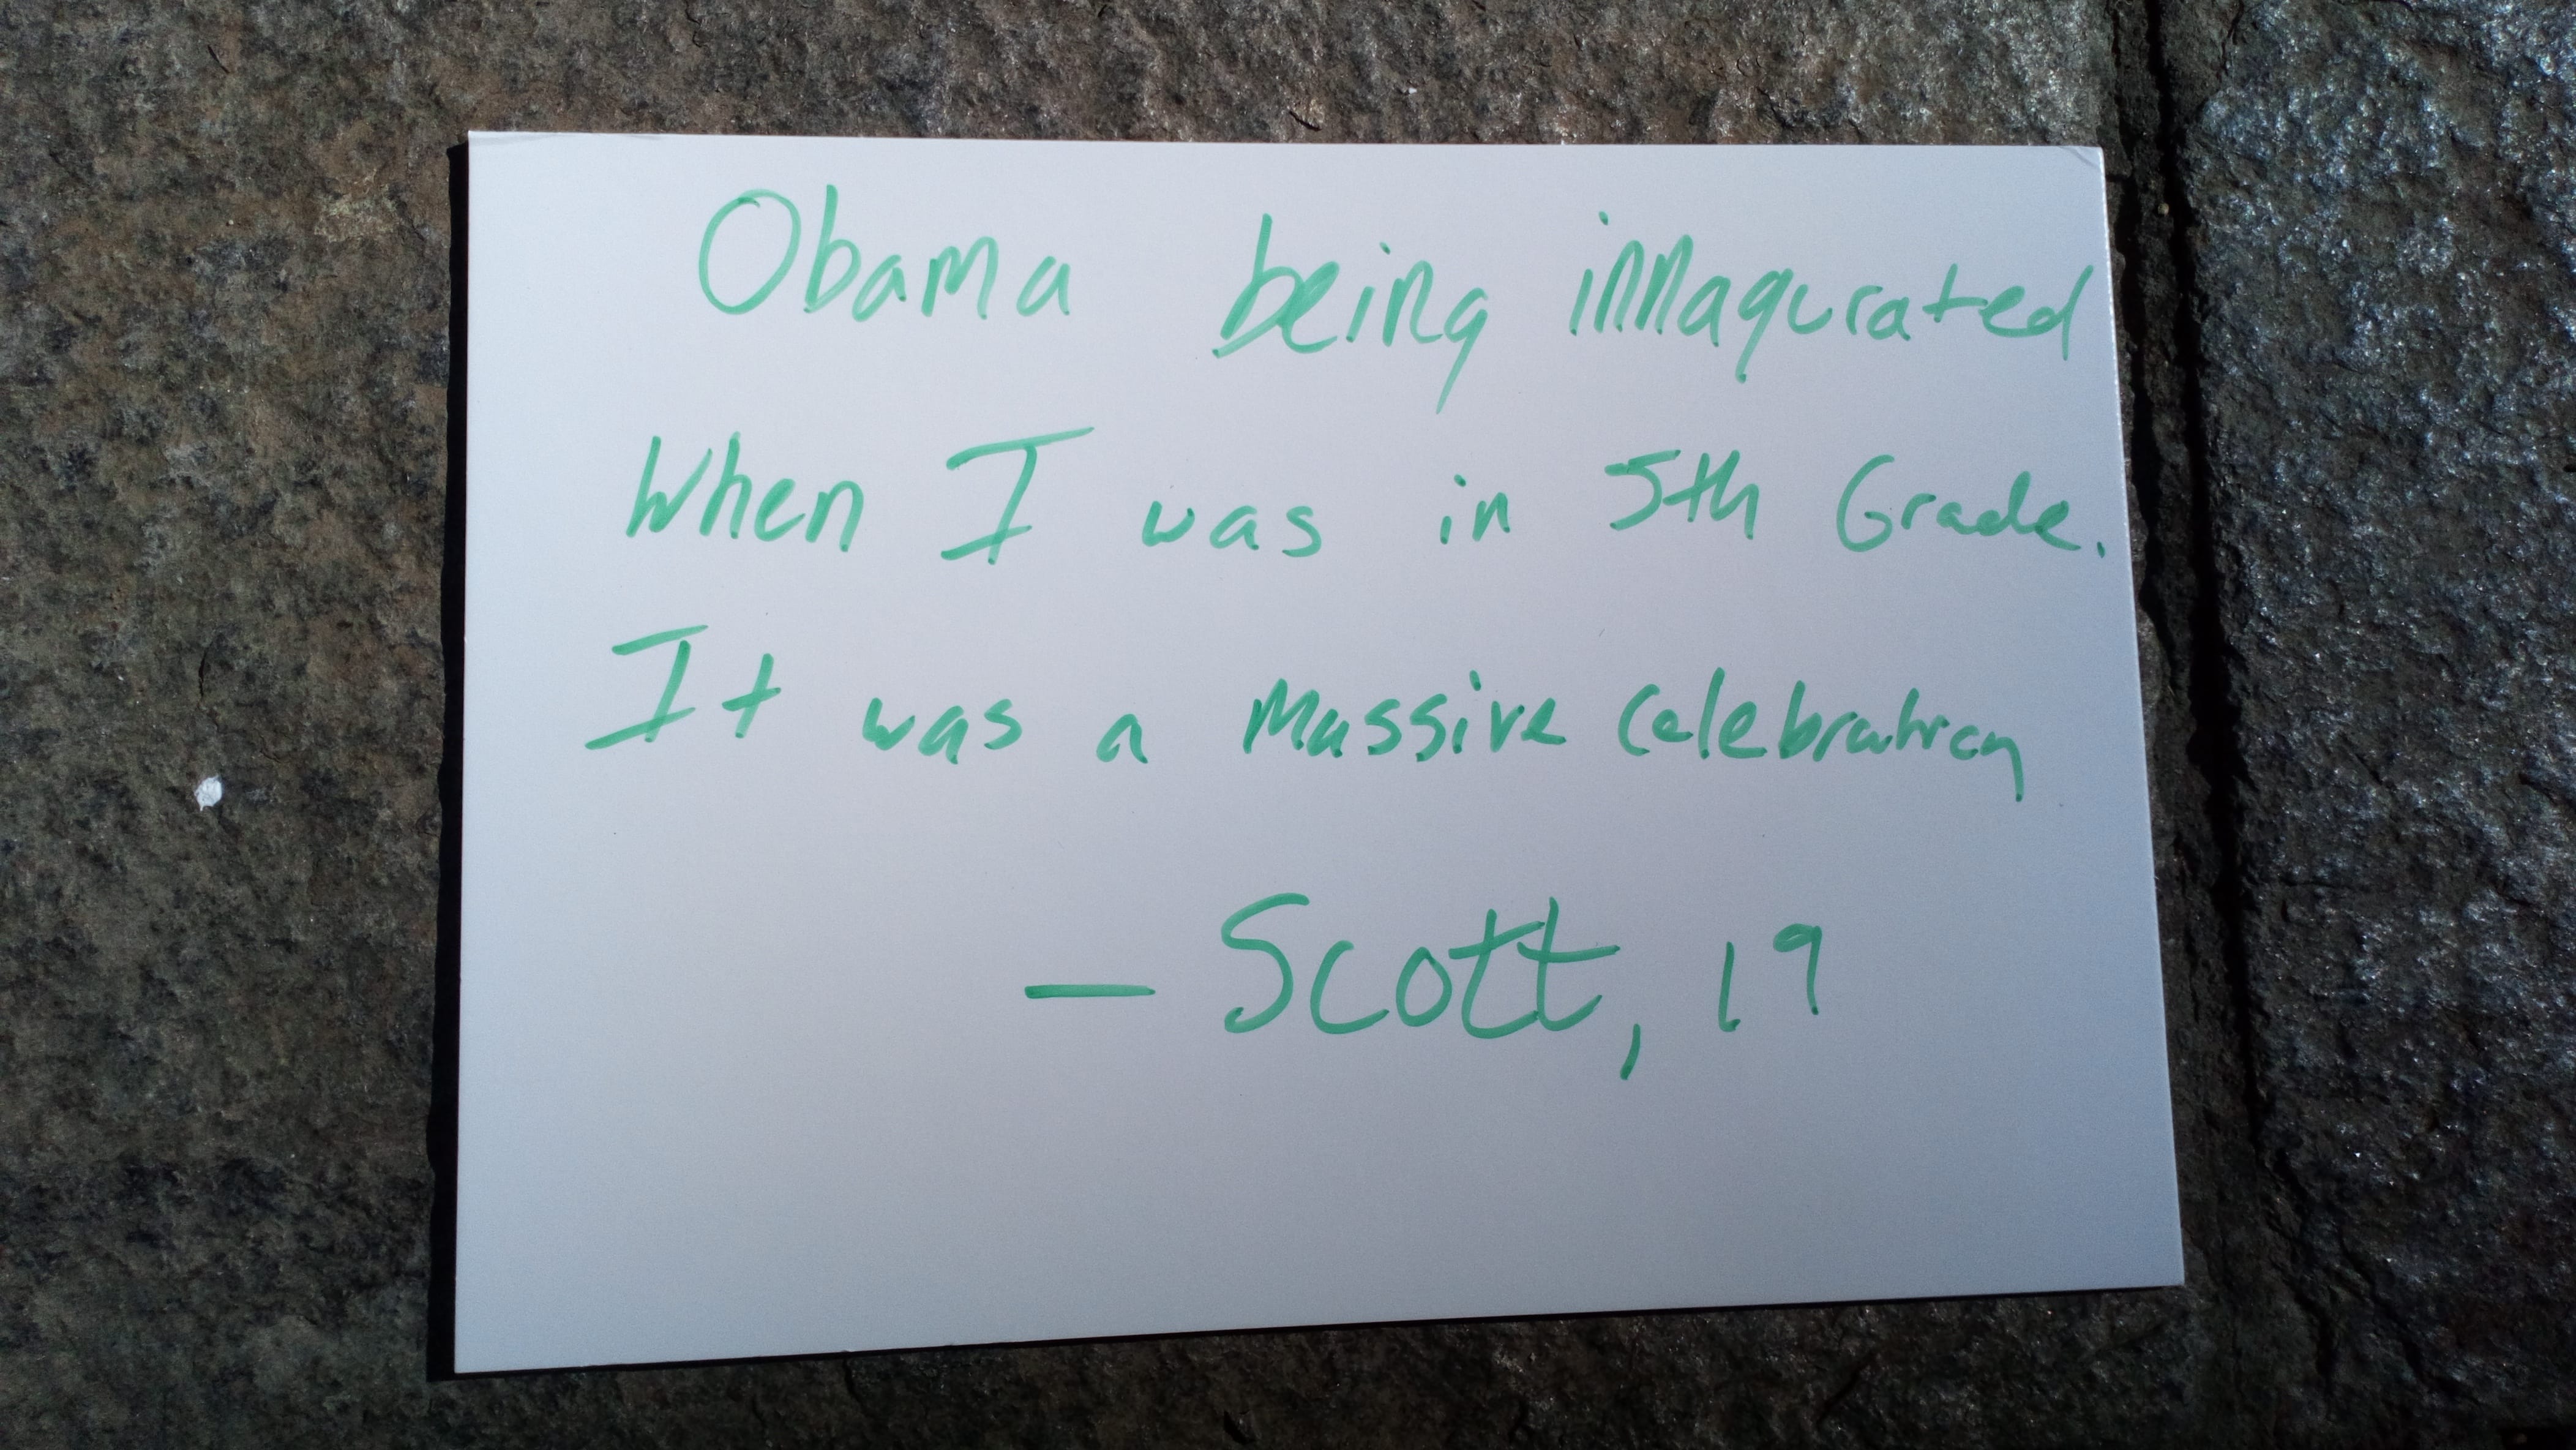 Obama being innagurated
When I was in 5th Grade.
It was a Massive Celebration
— Scott, 19